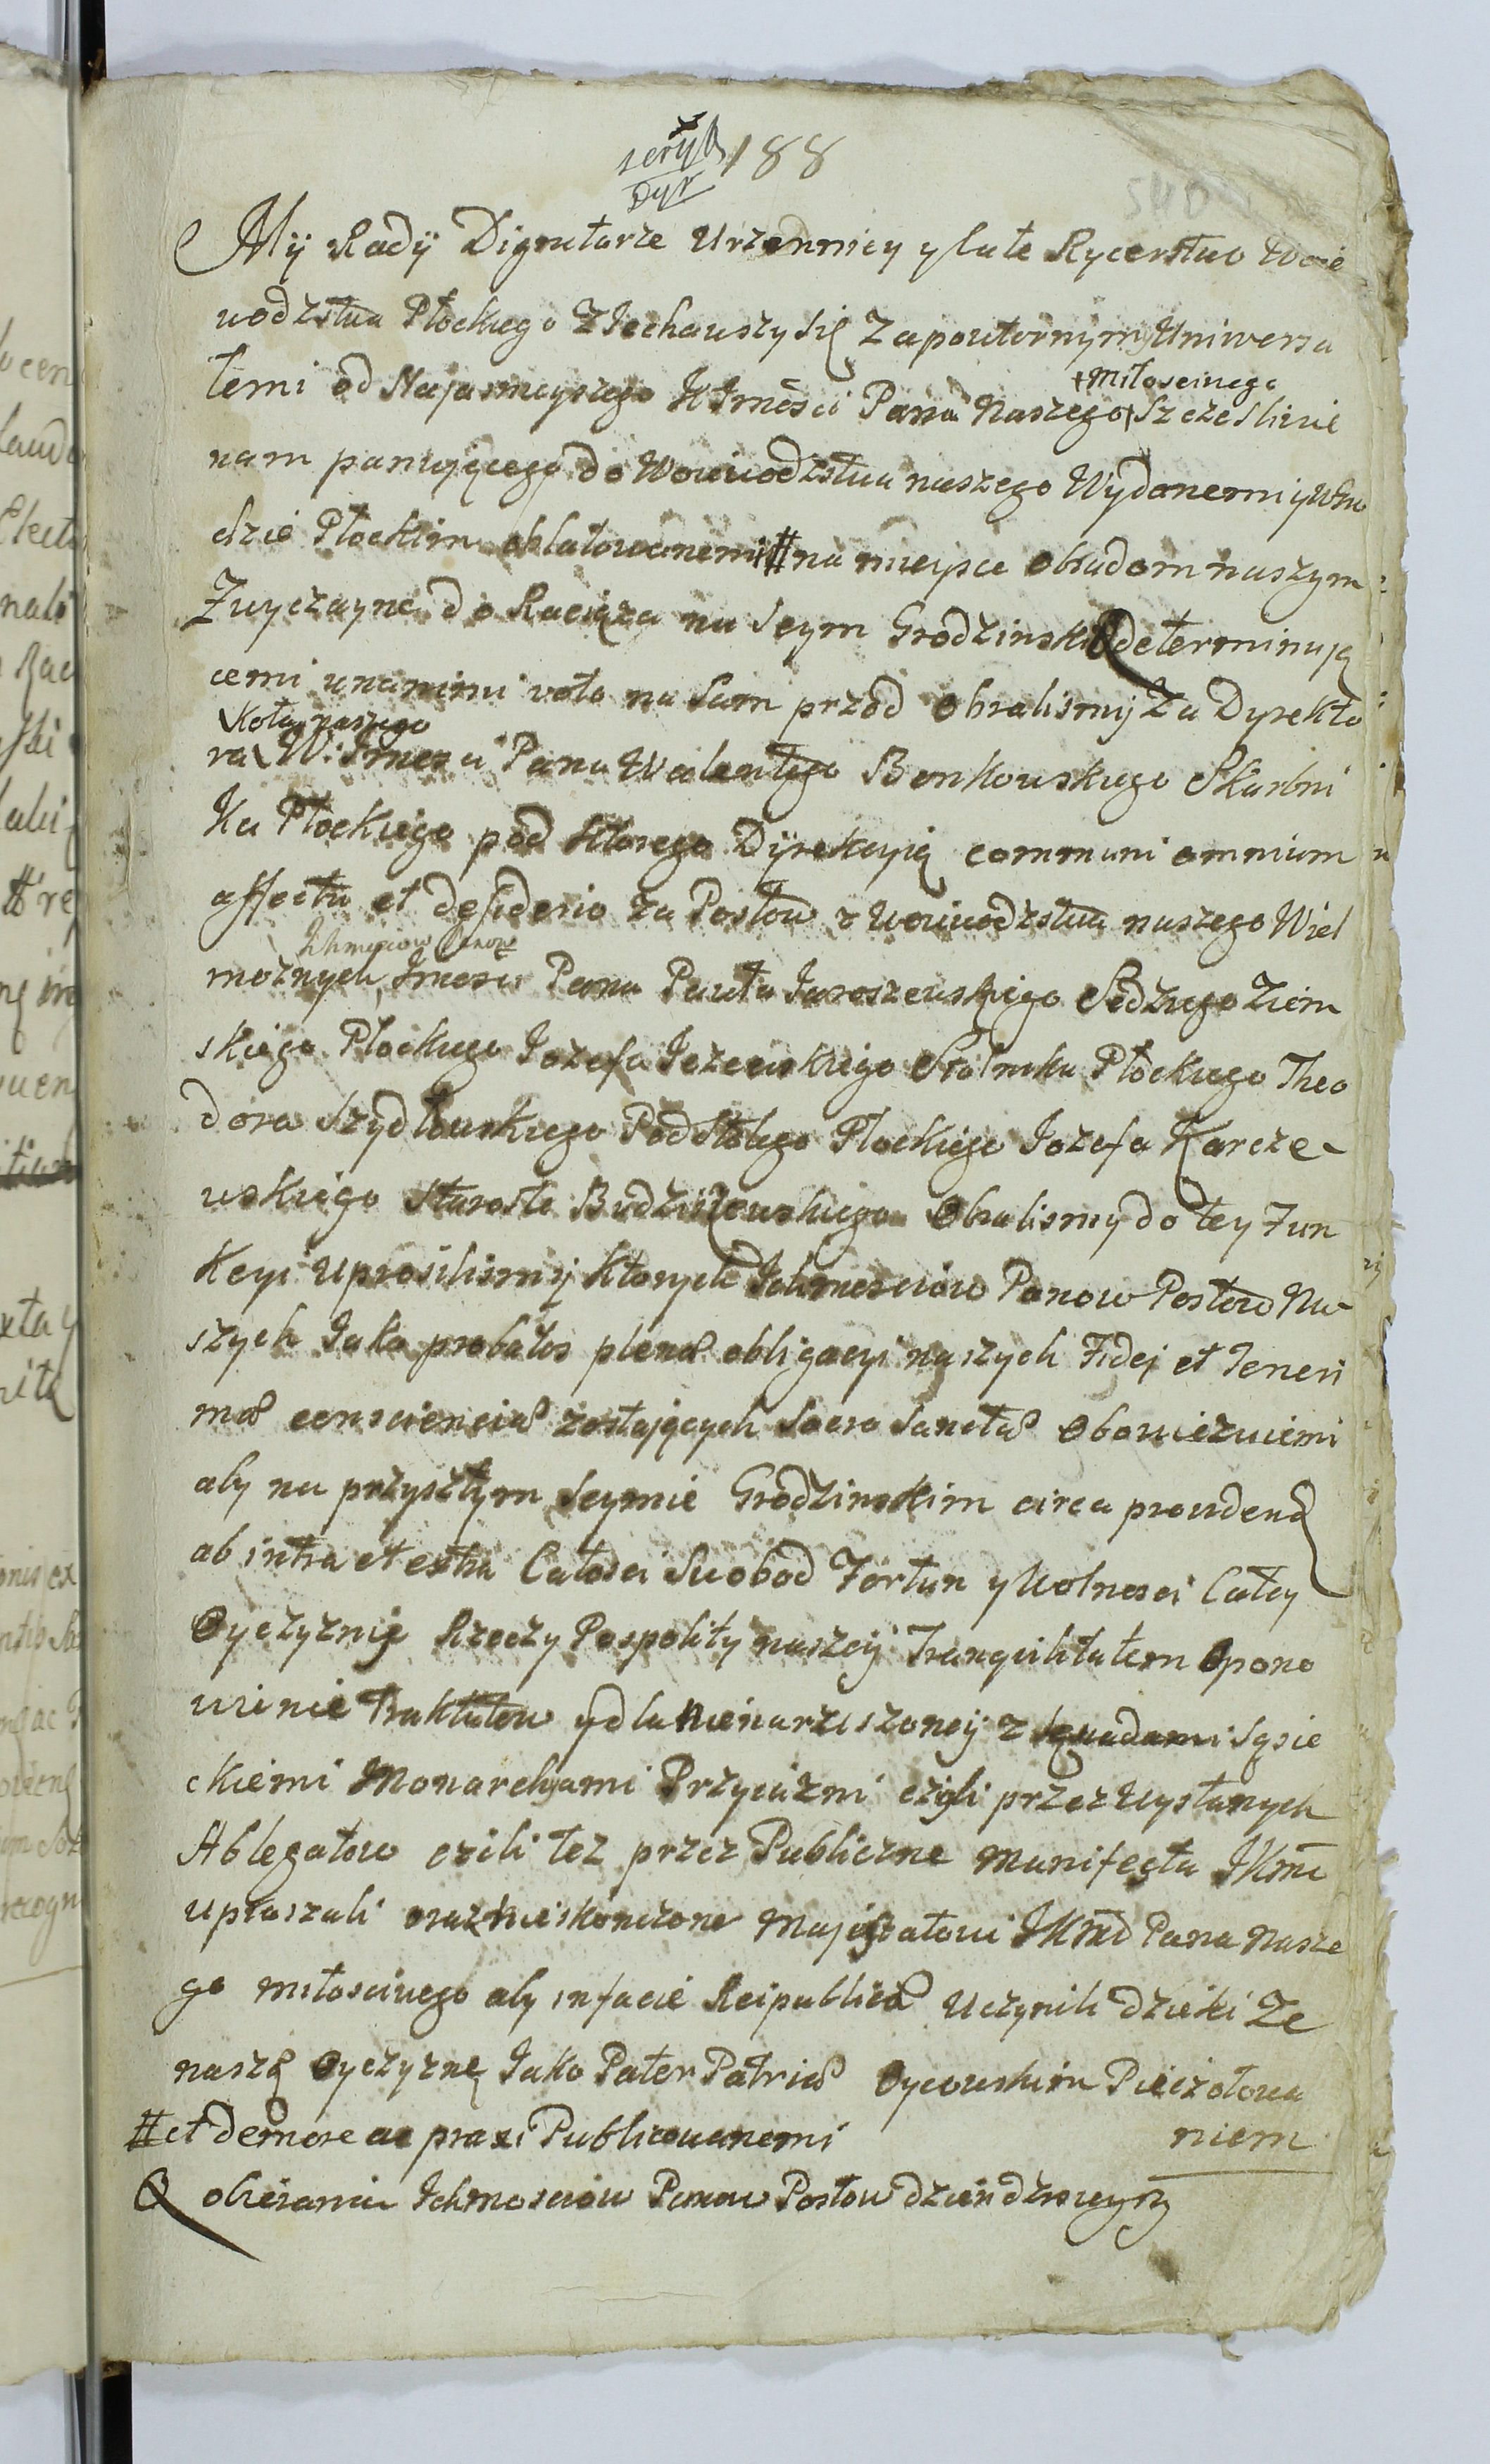 188
Dyr
My Rady Dignitarze Urzennicy y całe Rycerstwo Woie
wodzstwa Płockiego Ziechawszy się Za powtornymy Uniwersa
łemi od Najasnieyszego K Jmosci Pana Naszego +Miłosciwego Szczesliwie
nam panującego do Woiewodzstwa naszego Wydanemi y W Gro
dzie Płockim oblatowanemi # na mieysce obradom naszym
Zwyczayne do Raciąża na Seym Grodzinski determinują
cemi unanimi voto na Sam przod obralismy Za Dyrekto
ra Koła naszego W: Jmosci Pana Walentego Bonkowskiego Skarbni
ka Płockiego pod ktorego Dyrekcyią communi omnium
affectu et desiderio za Posłow z Woiewodzstwa naszego Wiel
moznych Ichmosciow Panow Jmosci Pana Pawła Jaroszewskiego Sedziego Ziem
skiego Płockiego Jozefa Jezewskiego Stolnika Płockiego Theo
dora Szydłowskiego Podstolego Płockiego Jozefa Karcze-
wskiego Staroste Budziszewskiego Obralismy do tey Fun
kcyi Uprosilismy Ktorych Ichmosciow Panow Posłow Na
szych Jako probatos plenæ obligacyi naszych Fidei et Teneri
mæ conscienciæ zostających Sacro Sanctæ Obowiezuiemi
aby na przyszłym Seymie Grodzinskim circa providend
ab intra et extra Całosci Swobod Fortun y Wolnosci Całey
Oyczyznie Rzeczy Pospolity naszey Tranquilitatem O pono
wienie Traktatow y dla Nienarziszoney z Sąsie
ckiemi Monarchami Przyiazni czyli przez Wysłanych
Ablegatow czili tez przez Publiczne Manifesta JKmć
upraszali oraz Nieskonczone Majestatowi JKmć Pana Nasze
go miłosciwego aby in facie Reipublicæ Uczynili dzieki Ze
naszą Oyczyznę Jako Pater Patriæ Oycowskim Pieczołowa
niem
# et de more ac praxi Publicowanemi
obierania Ichmosciow Panow Posłow dzien dzisieyszy